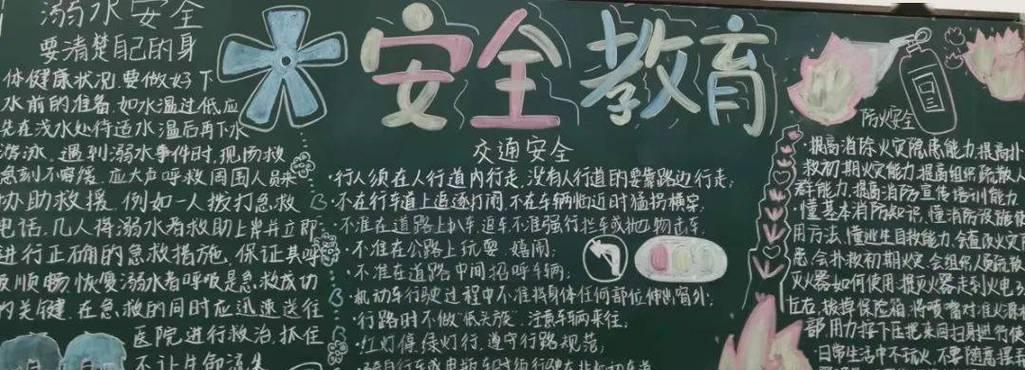 溺水安全
要清楚自己的身
体健康状况,要做好下
水前的准备,如水温过低应
先在浅水处待适水温后再下水
游泳。遇到溺水事件时,现场救
急刻不容缓,应大声呼救周围人员来
协助救援。例如一人拨打急救
电话,几人将溺水者救助上岸并立即
进行正确的急救措施。保证其呼
吸顺畅,恢复溺水者呼吸是急救成功
的关键,在急救的同时应迅速送往
医院进行救治,抓住
不让生命流失
安全教育
交通安全
·行人须在人行道内行走,没有人行道的要靠路边行走;
·不在行车道上追逐打闹,不在车辆临近时猛拐横穿;
·不准在道路上扒车、追车,不准强行拦车或抛物击车;
·不准在公路上玩耍、嬉闹;
·不准在道路中间招呼车辆;
·机动车行驶过程中不准将身体任何部位伸出窗外;
·行路时不做“低头族”,注意车辆来往;
·红灯停,绿灯行,遵守行路规范;
防火安全
·提高消除火灾隐患能力,提高扑
救初期火灾能力,提高组织疏散人
群能力,提高消防宣传培训能力
·懂基本消防知识,懂消防设施使
用方法,懂逃生自救能力,会查改火灾
患,会扑救初期火灾,会组织人员疏散
灭火器如何使用:提灭火器走到火电
左右,拔掉保险箱,将喷嘴对准火源根
部用力按下压把来回扫射进行使
·日常生活中不玩火,不要随意摆弄